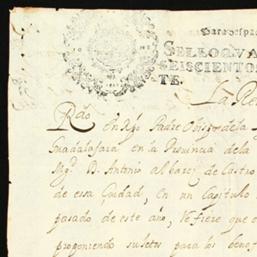 SELLO QVA
SEISCIENTOS
TE.
La Rey
En Xpo Padre Obispo de la
Guadalajara en la Provincia de la
Mg.d D. Antonio Albarez de Castro
de essa Ciudad, en un Capitulo
pasado de este año, refiere que
proponiendo sujetos para los benef